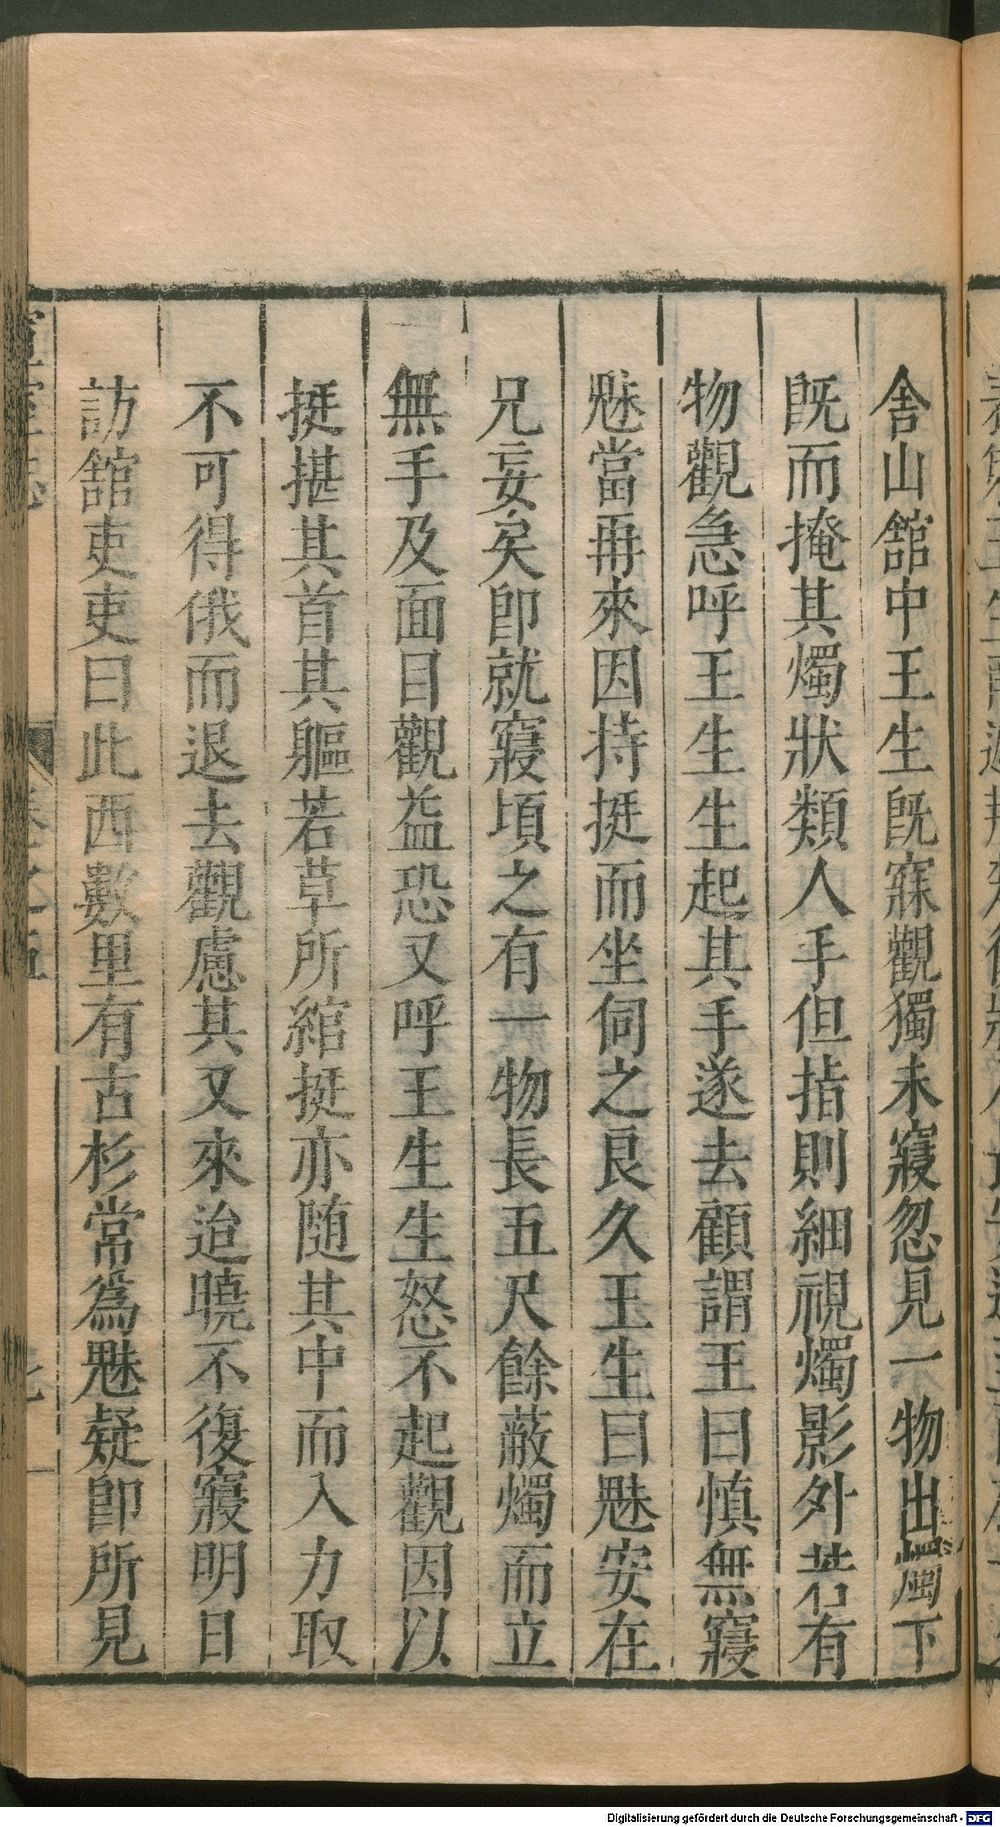 舍山舘中王生既寐觀獨未寢忽見一物出燭下
既而掩其燭狀類人手但指則細視燭影外若有
物觀急呼王生生起其手遂去顧謂王曰愼無寢
魅當再來因持挺而坐伺之良久王生曰魅安在
兄妄矣卽就寢頃之有一物長五尺餘蔽燭而立
無手及面目觀益恐又呼王生生怒不起觀因以
挺揕其首其軀若草所綰挺亦随其中而入力取
不可得俄而退去觀慮其又來迨曉不復寢明日
訪舘吏吏曰此西數里有古杉常爲魅疑卽所見
宣室志 卷之五
Digitalisierung gefördert durch die Deutsche Forschungsgemeinschaft - DFG